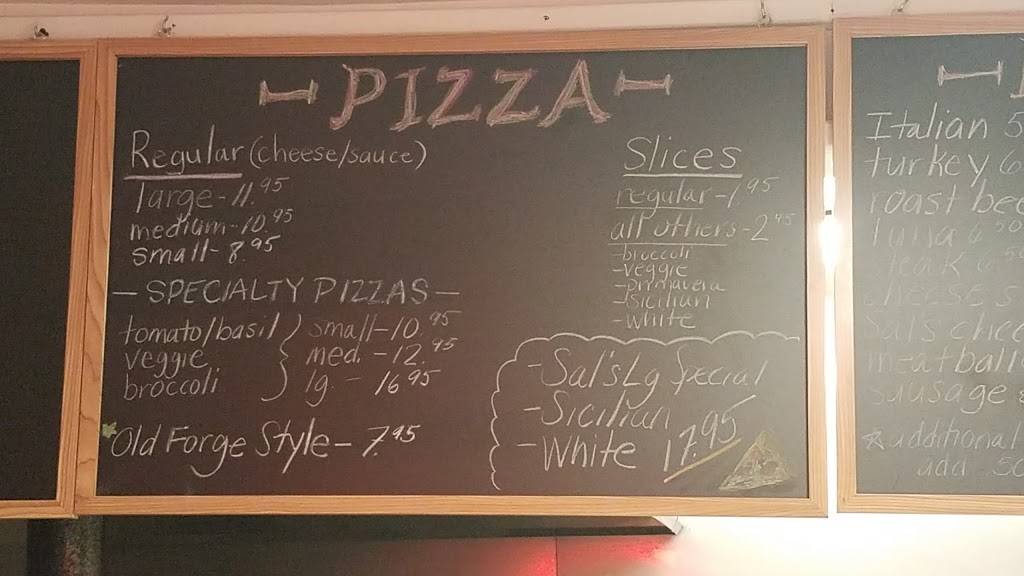 PIZZA
Regular (cheese/sauce)
large - 11.95
medium - 10.95
small - 8.95
- SPECIALTY PIZZAS -
tomato/basil } small - 10.95
veggie } med. - 12.95
broccoli } lg - 16.95
Old Forge Style - 7.95
Slices
regular - 1.95
all others - 2.95
- broccoli
- veggie
- primavera
- sicilian
- white
- Sal's Lg Special
- Sicilian
- White 17.95
Italian 5
turkey 6
roast bee
tuna 6 50
cheese s
Sal's chee
meatball
sausage &
☆ additional
add .50